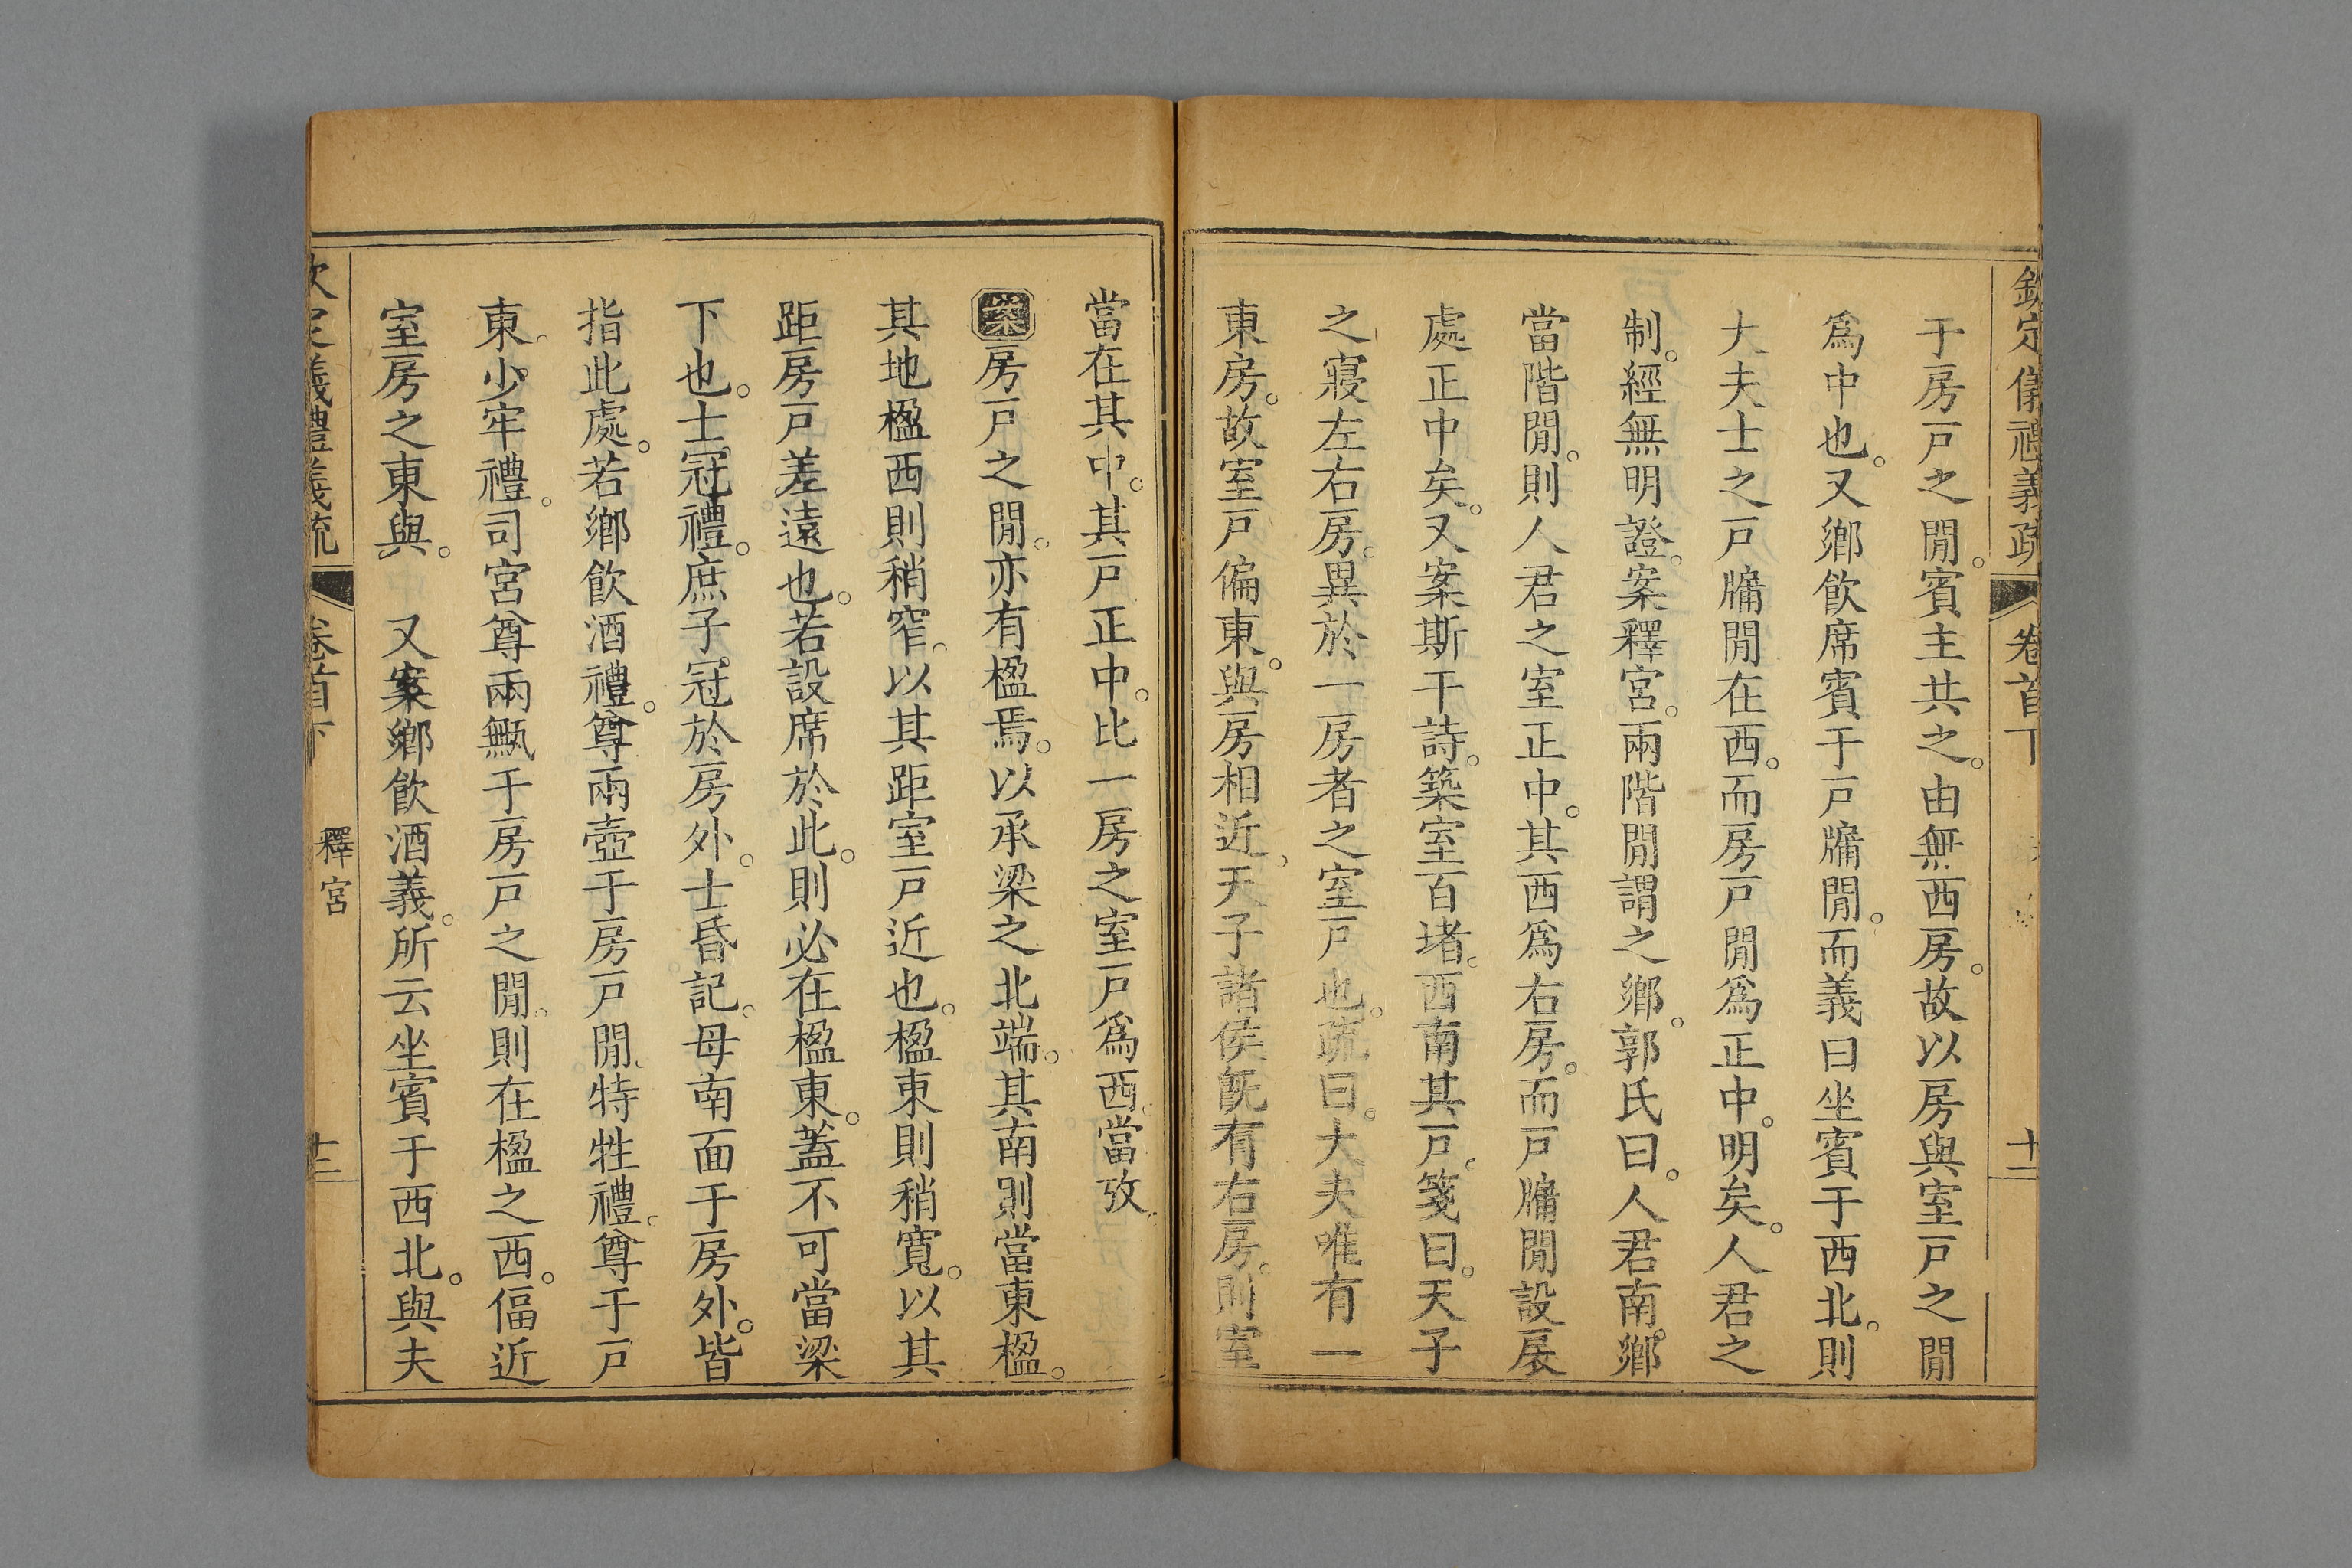 欽定儀禮義疏 卷首下 十二
于房戸之閒。賓主共之。由無西房。故以房與室戸之閒
爲中也。又鄉飲席賓于戸牖閒。而義曰坐賓于西北。則
大夫士之戸牖閒在西。而房戸閒爲正中。明矣。人君之
制。經無明證。案釋宮。兩階閒謂之鄉。郭氏曰。人君南鄉
當階閒。則人君之室正中。其西爲右房。而戸牖閒設扆
處正中矣。又案斯干詩。築室百堵。西南其戸。箋曰。天子
之寢左右房。異於一房者之室戸也。疏曰。大夫唯有一
東房。故室戸偏東。與房相近。天子諸侯旣有右房。則室
當在其中。其戸正中。比一房之室戸爲西。當攷。
案房戸之閒。亦有楹焉。以承梁之北端。其南則當東楹。
其地楹西則稍窄。以其距室戸近也。楹東則稍寬。以其
距房戸差遠也。若設席於此。則必在楹東。蓋不可當梁
下也。士冠禮。庶子冠於房外。士昏記。母南面于房外。皆
指此處。若鄉飲酒禮。尊兩壺于房戸閒。特牲禮。尊于戸
東。少牢禮。司宮尊兩甒于房戸之閒。則在楹之西。偪近
室房之東與。 又案鄉飲酒義。所云坐賓于西北。與夫
欽定儀禮義疏 卷首下 釋宮 十三